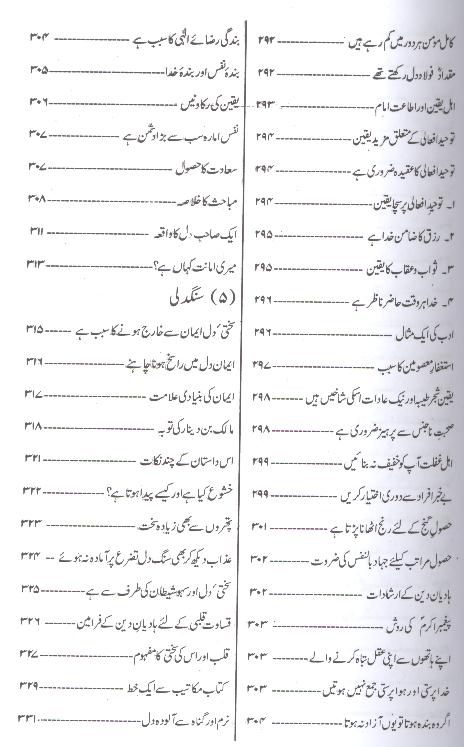 کامل مؤمن ہر دور میں کم رہے ہیں ۲۹۲
مقدادؓ فولاد دل رکھتے تھے ۲۹۲
اہل یقین اور اطاعت امام ۲۹۳
توحید افعالی کے متعلق مزید یقین ۲۹۴
توحید افعالی کا عقیدہ ضروری ہے ۲۹۴
۱۔ توحید افعالی پر سچا یقین ۲۹۴
۲۔ رزق کا ضامن خدا ہے ۲۹۵
۳۔ ثواب و عقاب کا یقین ۲۹۵
۴۔ خدا ہر وقت حاضر ناظر ہے ۲۹۶
ادب کی ایک مثال ۲۹۶
استغفار معصومین کا سبب ۲۹۷
یقین شجر طیبہ اور نیک عادات اسکی شاخیں ہیں ۲۹۸
صحبت ناجنس سے پرہیز ضروری ہے ۲۹۸
اہل غفلت آپ کو خفیف نہ بنائیں ۲۹۹
بے خبر افراد سے دوری اختیار کریں ۲۹۹
حصول گنج کے لئے رنج اٹھانا پڑتا ہے ۳۰۱
حصول مراتب کیلئے جہاد بالنفس کی ضرورت ۳۰۲
ہادیان دین کے ارشادات ۳۰۲
پیغمبر اکرمؐ کی روش ۳۰۳
اپنے ہاتھوں سے اپنی عقل تباہ کرنے والے ۳۰۳
خدا پرستی اور ہوا پرستی جمع نہیں ہوتیں ۳۰۳
اگر وہ بندہ ہوتا تو یوں آزاد نہ ہوتا ۳۰۴
بندگی رضائے الٰہی کا سبب ہے ۳۰۴
بندۂ نفس اور بندۂ خدا ۳۰۵
یقین کی رکاوٹیں ۳۰۶
نفس امارہ سب سے بڑا دشمن ہے ۳۰۷
سعادت کا حصول ۳۰۷
مباحث کا خلاصہ ۳۰۸
ایک صاحب دل کا واقعہ ۳۱۱
میری امانت کہاں ہے؟ ۳۱۳
(۵) سنگدلی
سختیٔ دل ایمان سے خارج ہونے کا سبب ہے ۳۱۵
ایمان دل میں راسخ ہونا چاہئے ۳۱۶
ایمان کی بنیادی علامت ۳۱۷
مالک بن دینار کی توبہ ۳۱۸
اس داستان کے چند نکات ۳۲۱
خشوع کیا ہے اور کیسے پیدا ہوتا ہے؟ ۳۲۲
پتھروں سے بھی زیادہ سخت ۳۲۳
عذاب دیکھ کر بھی سنگ دل تضرع پر آمادہ نہ ہوئے ۳۲۴
سختیٔ دل اور سہو شیطان کی طرف سے ہے ۳۲۵
قساوت قلبی کے لئے ہادیان دین کے فرامین ۳۲۶
قلب اور اس کی سختی کا مفہوم ۳۲۷
کتاب مکاتیب سے ایک خط ۳۲۹
نرم اور گناہ سے آلودہ دل ۳۳۱